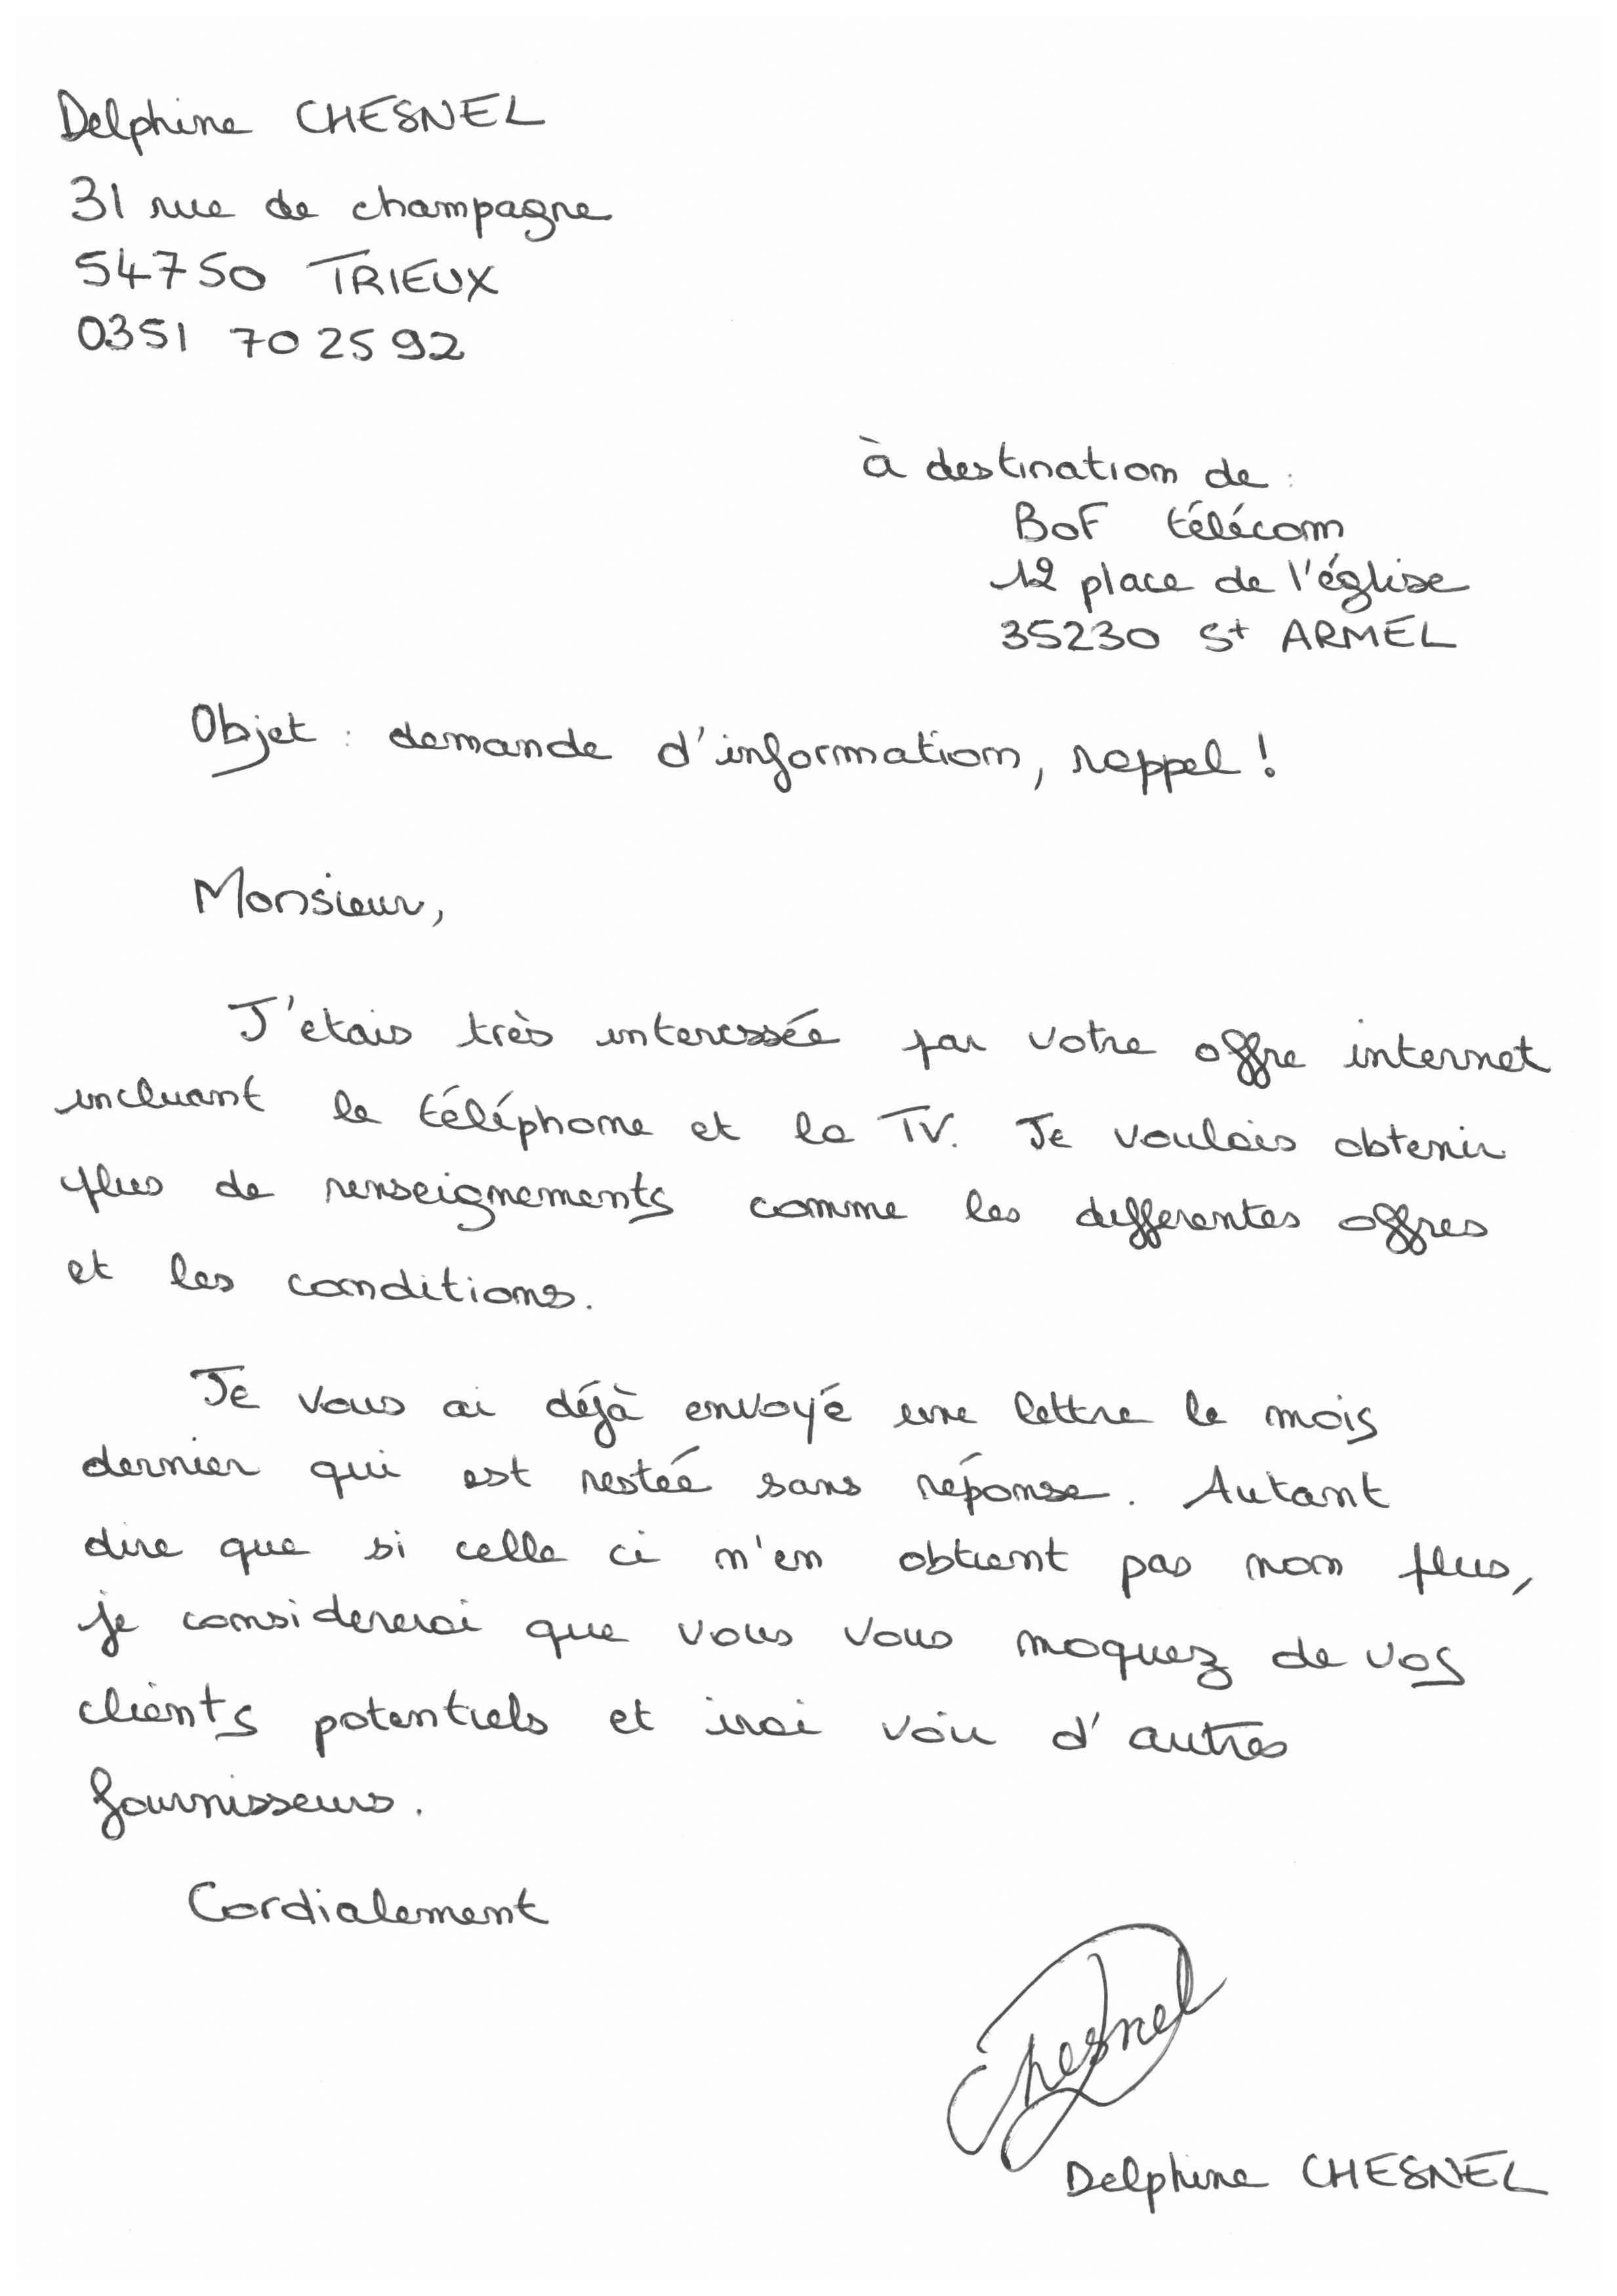 Delphine CHESNEL
31 rue de champagne
54750 TRIEUX
0351 70 25 92
à destination de :
BoF télécom
12 place de l'église
35230 St ARMEL
Objet : demande d'information, rappel !
Monsieur,
J'etais très interessée par votre offre internet
incluant le téléphone et la TV. Je voulais obtenir
plus de renseignements comme les differentes offres
et les conditions.
Je vous ai déjà envoyé une lettre le mois
dernier qui est restée sans réponse. Autant
dire que si celle ci n'en obtient pas non plus,
je considererai que vous vous moquez de vos
clients potentiels et irai voir d'autres
fournisseurs.
Cordialement
Chesnel
Delphine CHESNEL